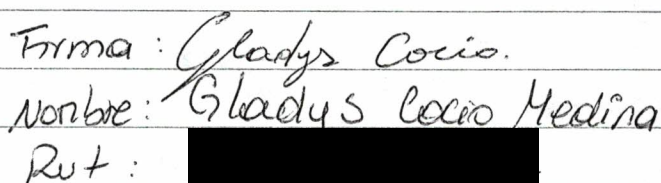 Firma: Gladys Cocio.
Nombre: Gladys Cocio Medina
Rut: